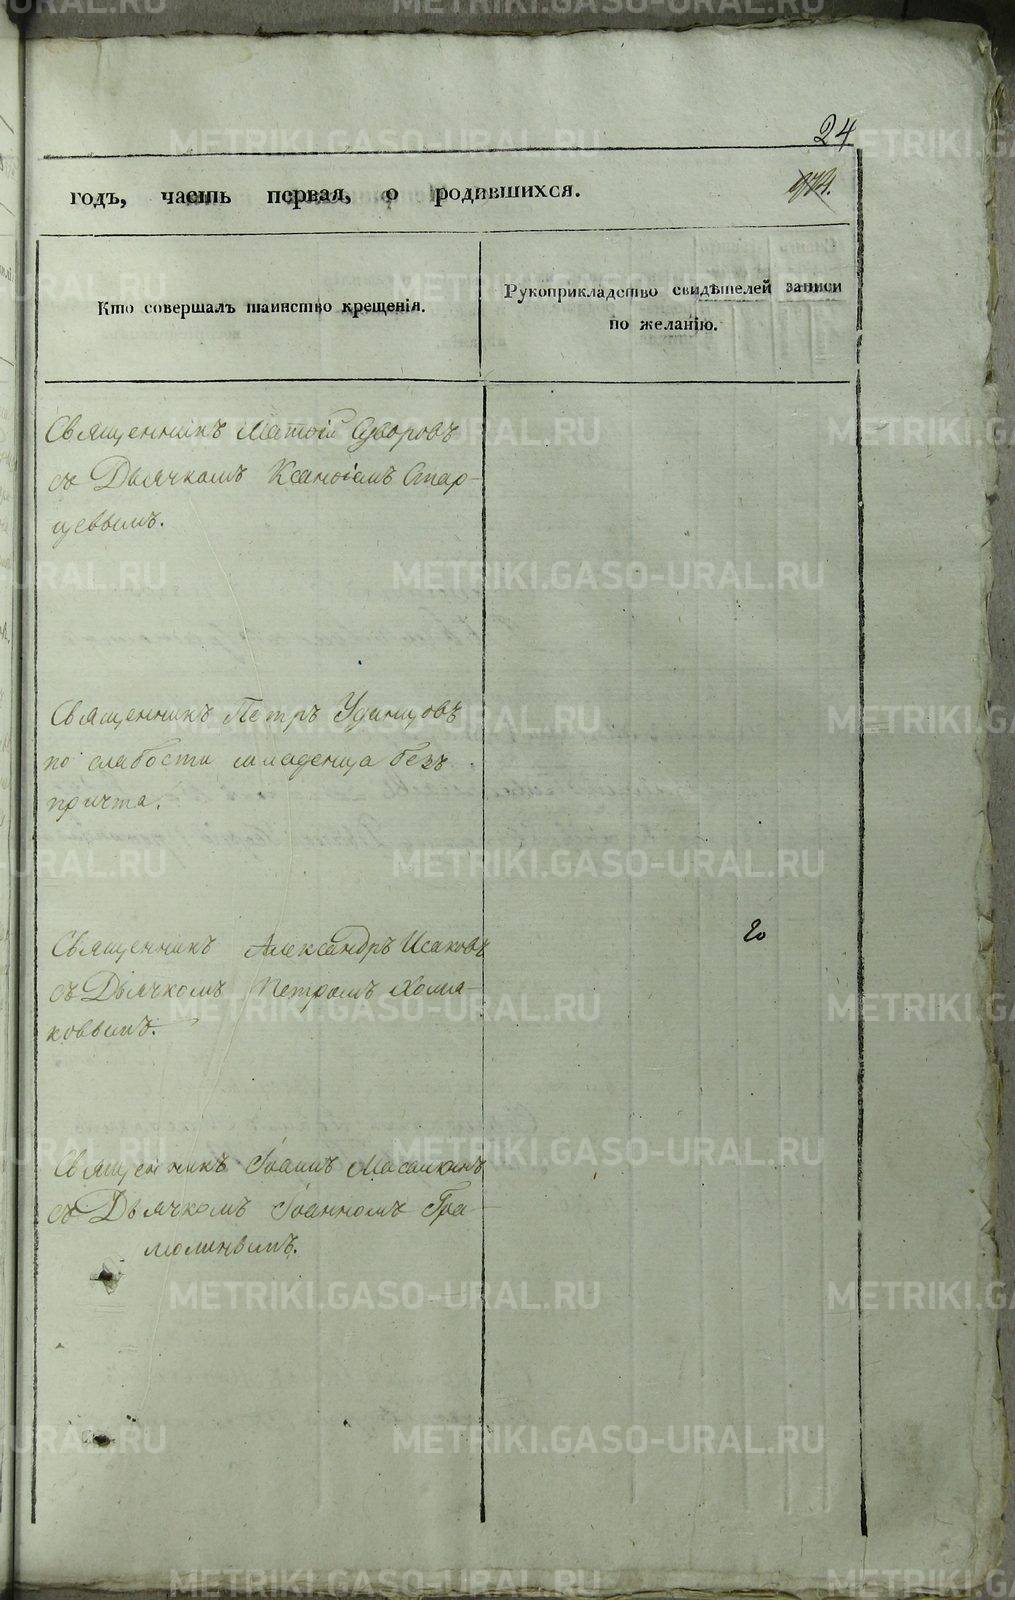 24
974.
годъ, часть первая, о родившихся.
Кто совершалъ таинство крещенія.
Рукоприкладство свидѣтелей записи
по желанію.
Священникъ Матѳій Суворовъ
съ Дьячкомъ Ксаноіемъ Стар-
цевымъ.
Священникъ Петръ Удинцовъ
по слабости младенца безъ
причта.
Священникъ Александръ Исаковъ
съ Дьячкомъ Петромъ Хома-
ковымъ.
Священникъ Іоаннъ Масалкинъ
съ Дьячкомъ Іоанномъ Гра-
молинымъ.
METRIKI.GASO-URAL.RU